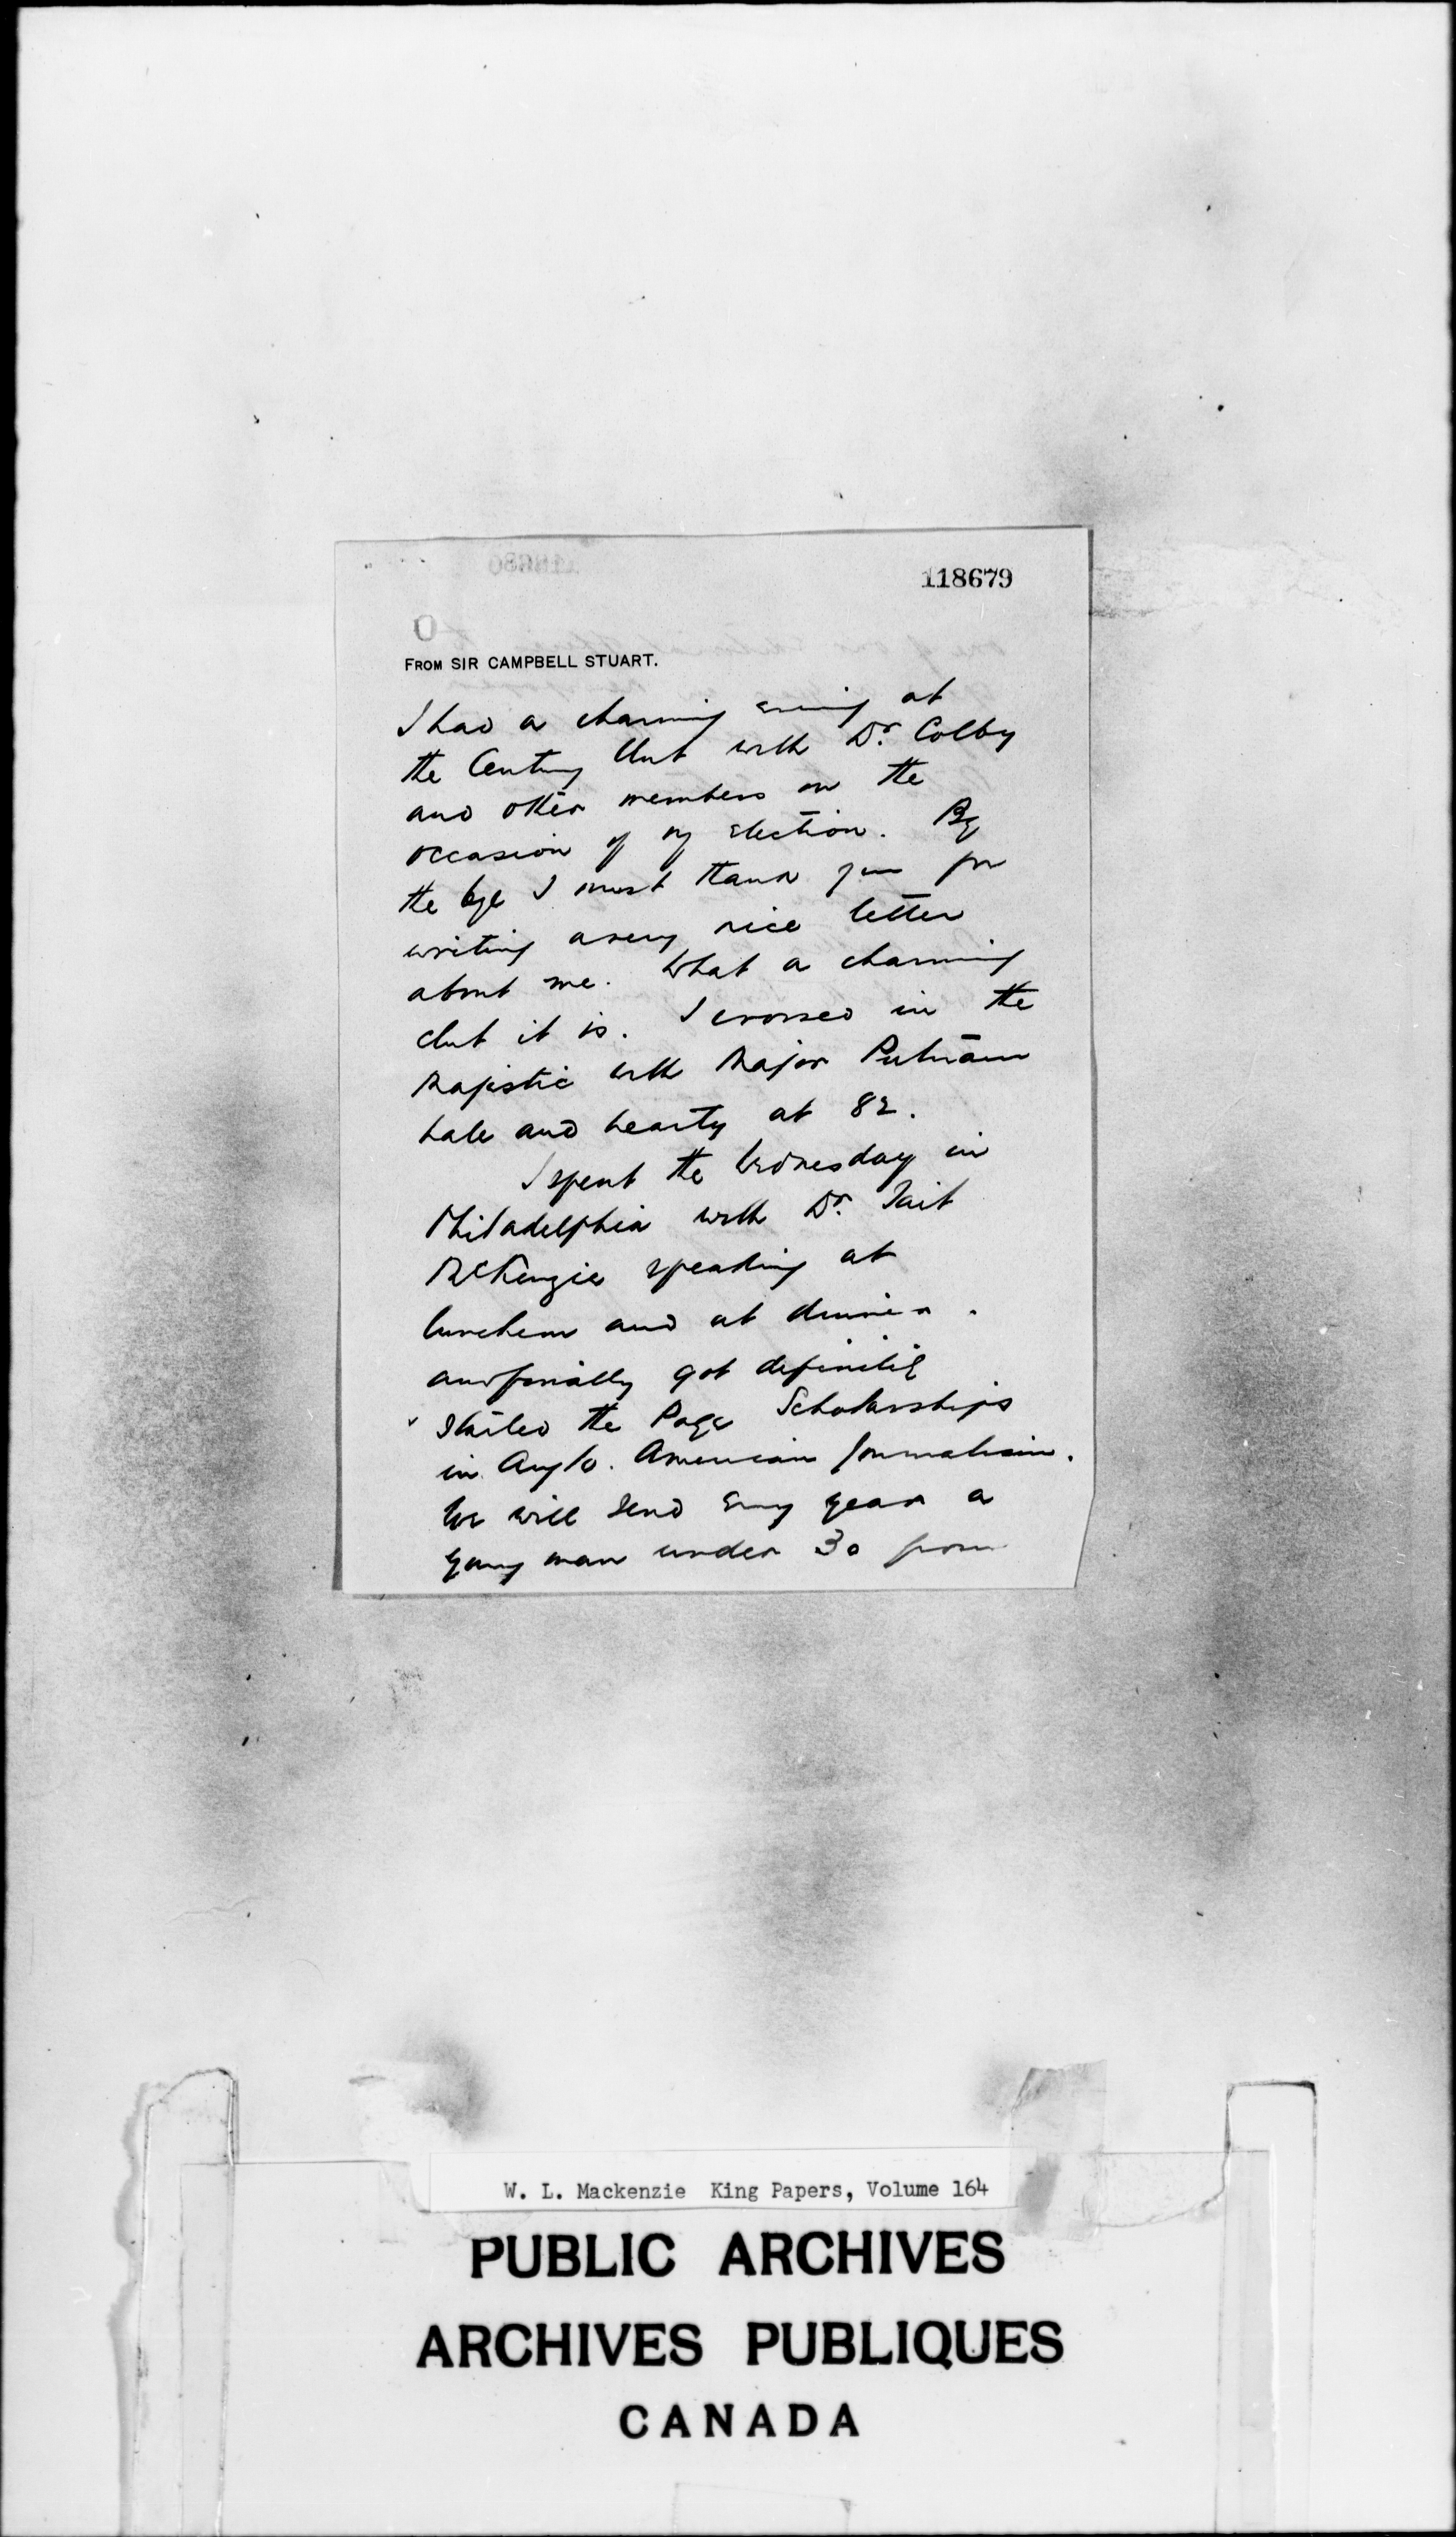 118679
FROM SIR CAMPBELL STUART.
I had a charming evening at
the Century Club with Dr. Colby
and other members on the
occasion of my election. By
the bye I must thank you for
writing a very nice letter
about me. What a charming
club it is. I crossed in the
Majestic with Major Putnam
hale and hearty at 82.
I spent the Wednesday in
Philadelphia with Dr. Tait
McKenzie speaking at
luncheon and at dinner.
and finally got definitely
started the Page Scholarships
in Anglo. American Journalism.
We will send every year a
young man under 30 from
W. L. Mackenzie King Papers, Volume 164
PUBLIC ARCHIVES
ARCHIVES PUBLIQUES
CANADA